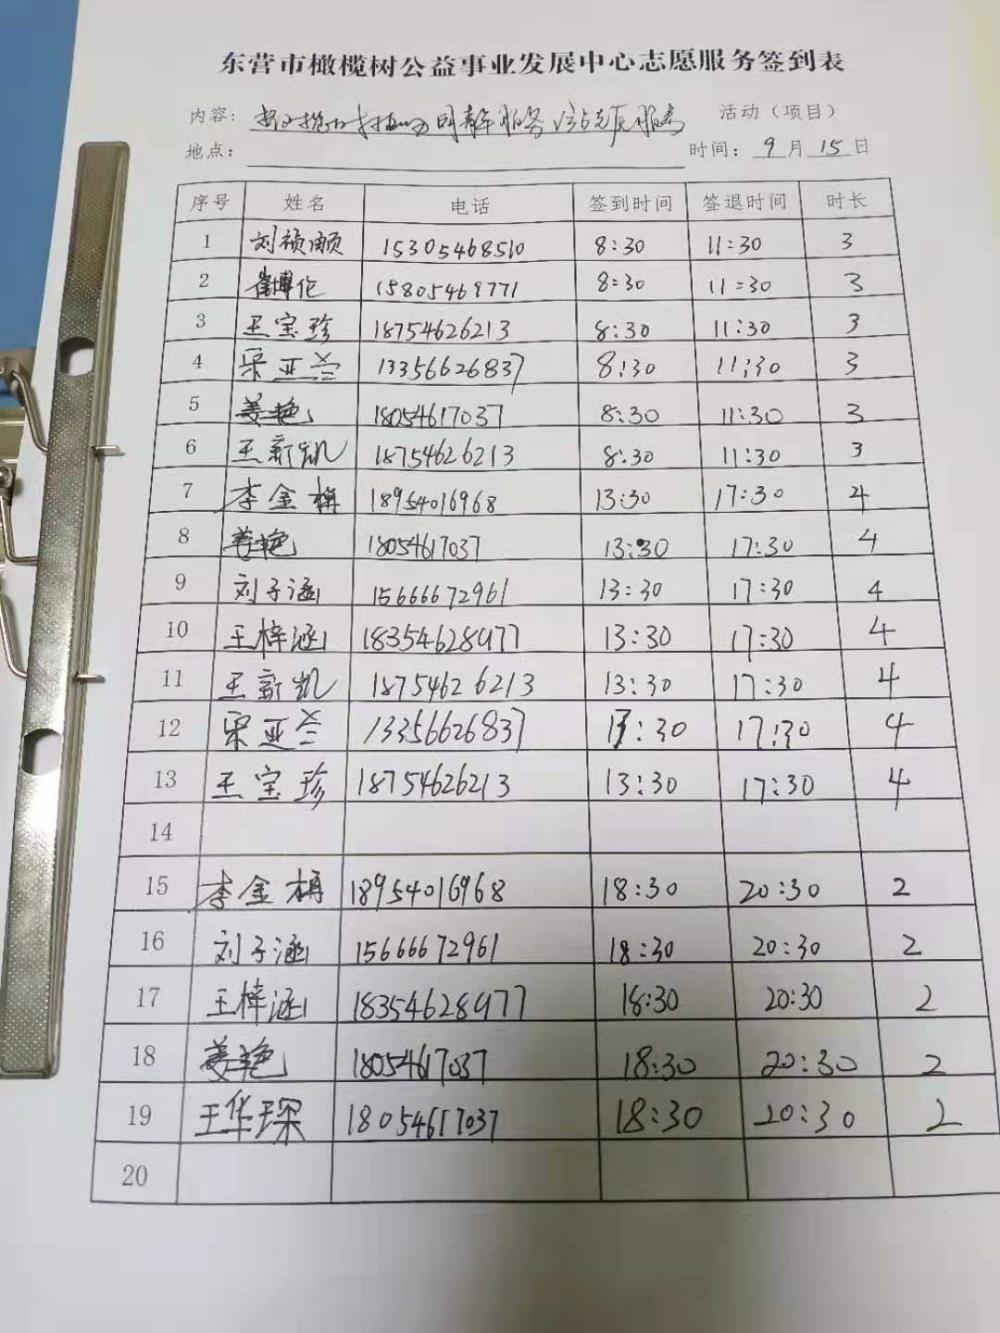 东营市橄榄树公益事业发展中心志愿服务签到表
内容： 活动（项目）
地点： 时间：9月15日
序号 姓名 电话 签到时间 签退时间 时长
1 刘祯顺 15305468510 8:30 11:30 3
2 崔博伦 15805469771 8:30 11:30 3
3 王宝珍 18754626213 8:30 11:30 3
4 宋亚兰 13356626837 8:30 11:30 3
5 姜艳 18054617037 8:30 11:30 3
6 王新凯 18754626213 8:30 11:30 3
7 李金 18954016968 13:30 17:30 4
8 姜艳 18054617037 13:30 17:30 4
9 刘子涵 15666672961 13:30 17:30 4
10 王梓涵 18354628977 13:30 17:30 4
11 王新凯 18754626213 13:30 17:30 4
12 宋亚兰 13356626837 13:30 17:30 4
13 王宝珍 18754626213 13:30 17:30 4
14
15 李金 18954016968 18:30 20:30 2
16 刘子涵 15666672961 18:30 20:30 2
17 王梓涵 18354628977 18:30 20:30 2
18 姜艳 18054617037 18:30 20:30 2
19 王华琛 18054617037 18:30 20:30 2
20